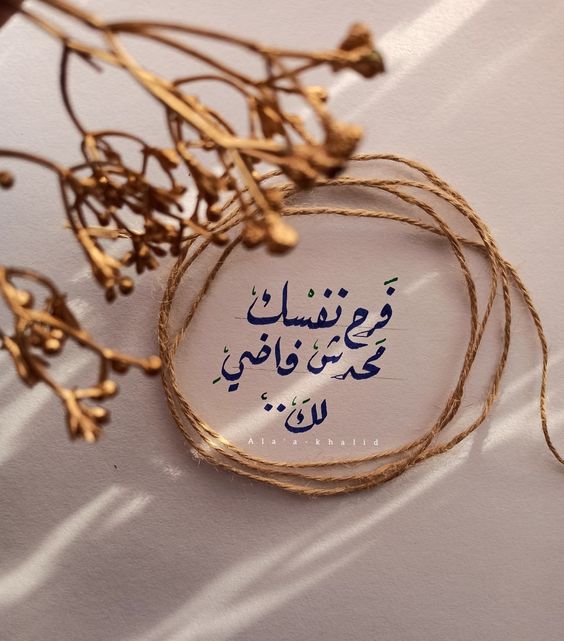 فَرح نفْسك
مَحدش فاضيِ
لكَ..
Ala'a-khalid